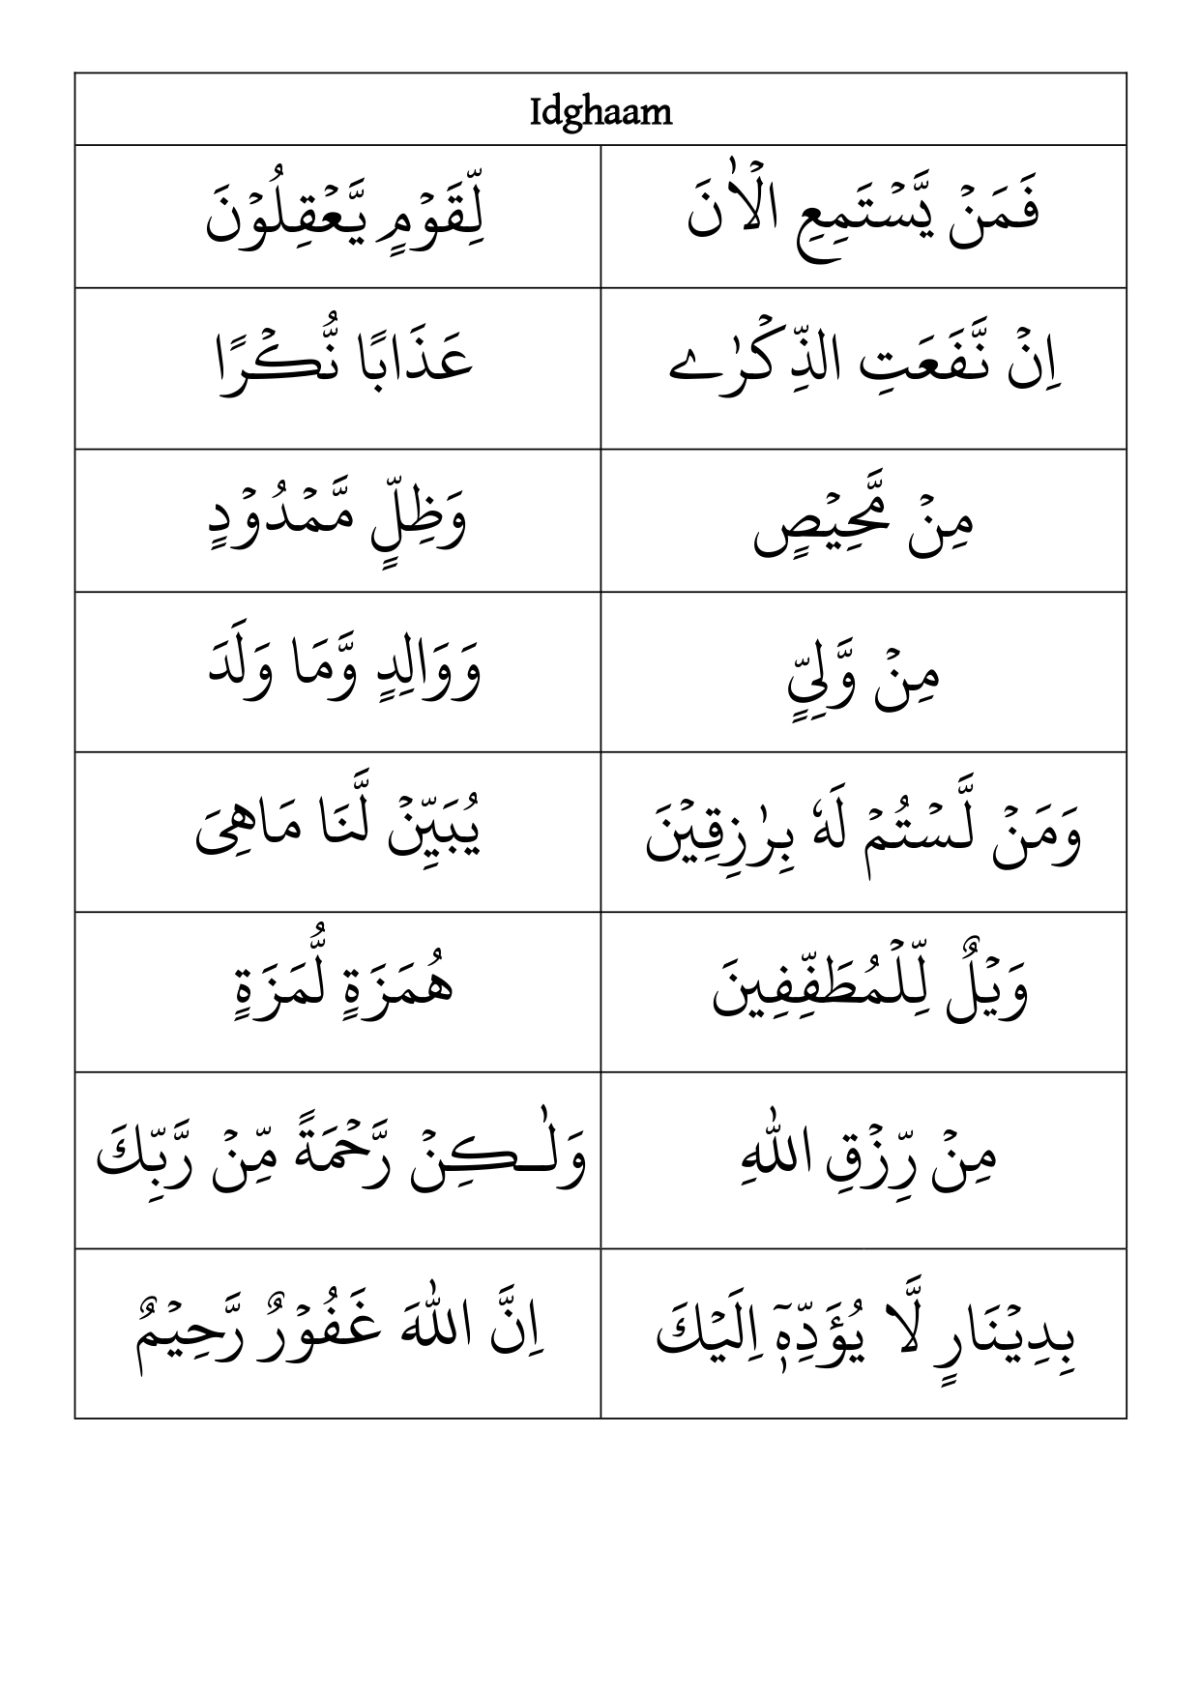 Idghaam
فَمَنۡ يَّسۡتَمِعِ الۡاٰنَ
لِّقَوۡمٍ يَّعۡقِلُوۡنَ
اِنۡ نَّفَعَتِ الذِّكۡرٰے
عَذَابًا نُّكۡرًا
مِنۡ مَّحِيۡصٍ
وَظِلٍّ مَّمۡدُوۡدٍ
مِنۡ وَّلِىٍّ
وَوَالِدٍ وَّمَا وَلَدَ
وَمَنۡ لَّسۡتُمۡ لَهٗ بِرٰزِقِيۡنَ
يُبَيِّنۡ لَّنَا مَاهِىَ
وَيۡلٌ لِّلۡمُطَفِّفِينَ
هُمَزَةٍ لُّمَزَةٍ
مِنۡ رِّزۡقِ اللّٰهِ
وَلٰـكِنۡ رَّحۡمَةً مِّنۡ رَّبِّكَ
بِدِيۡنَارٍ لَّا يُؤَدِّهٖۤ اِلَيۡكَ
اِنَّ اللّٰهَ غَفُوۡرٌ رَّحِيۡمٌ